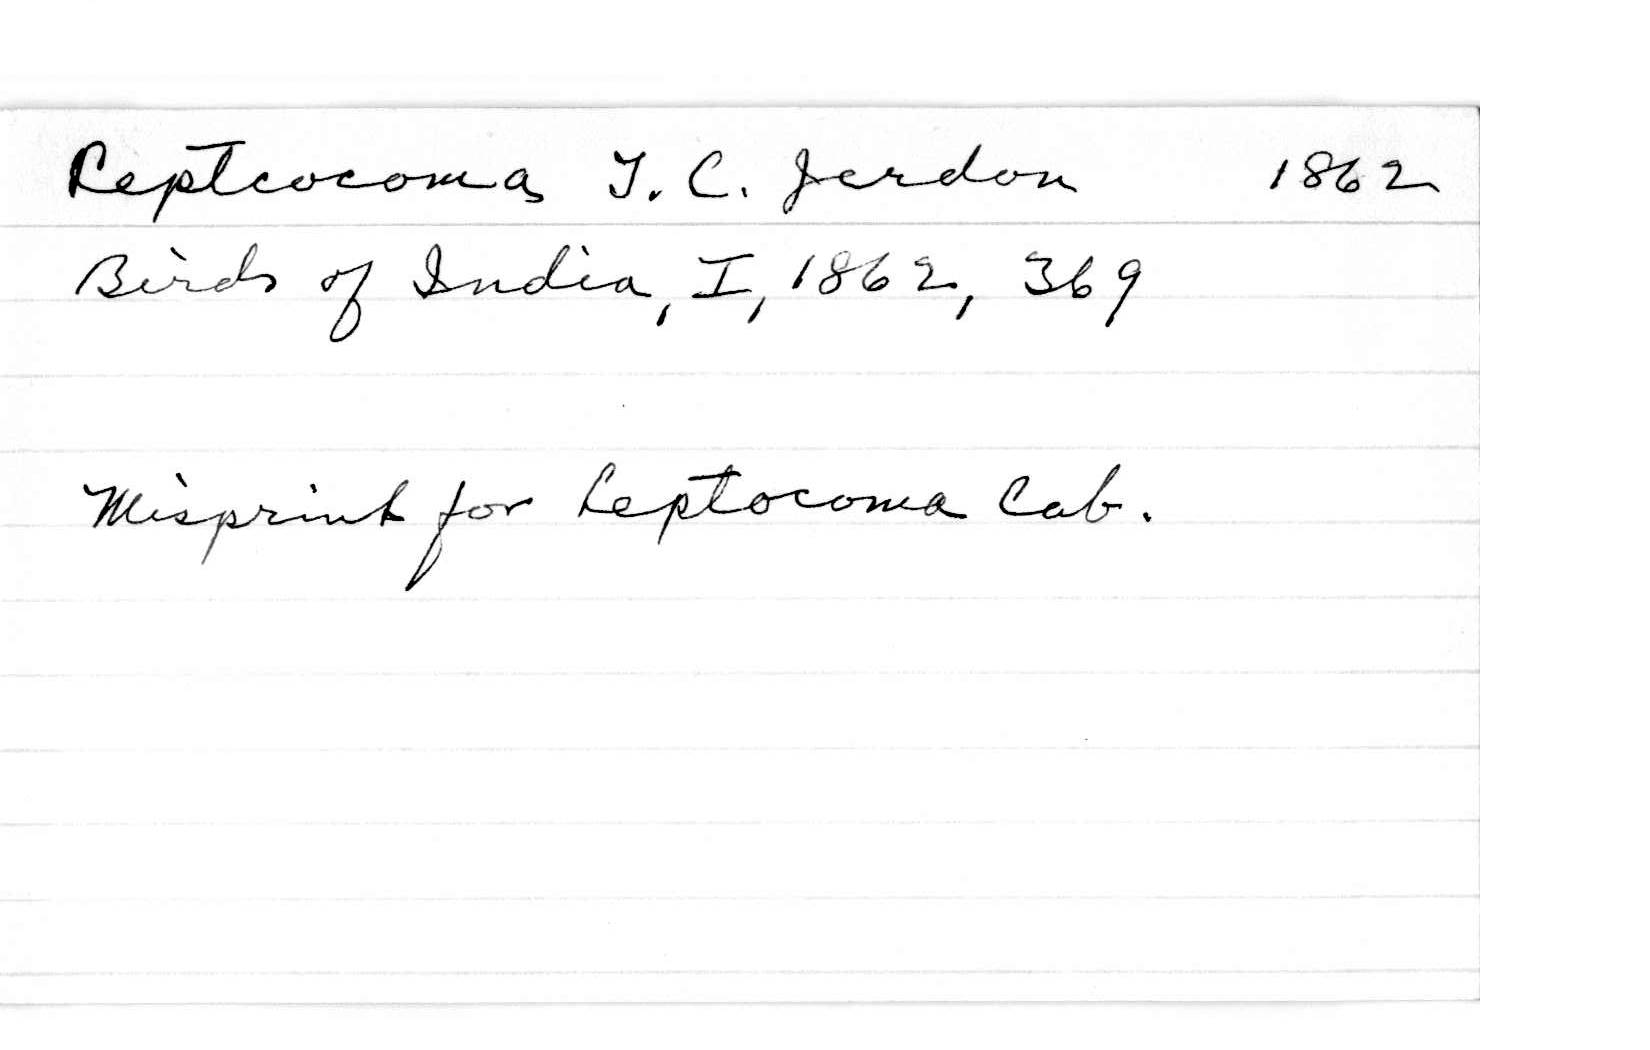 Leptcocoma T. C. Jerdon 1862
Birds of India, I, 1862, 369
Misprint for Leptocoma Cab.